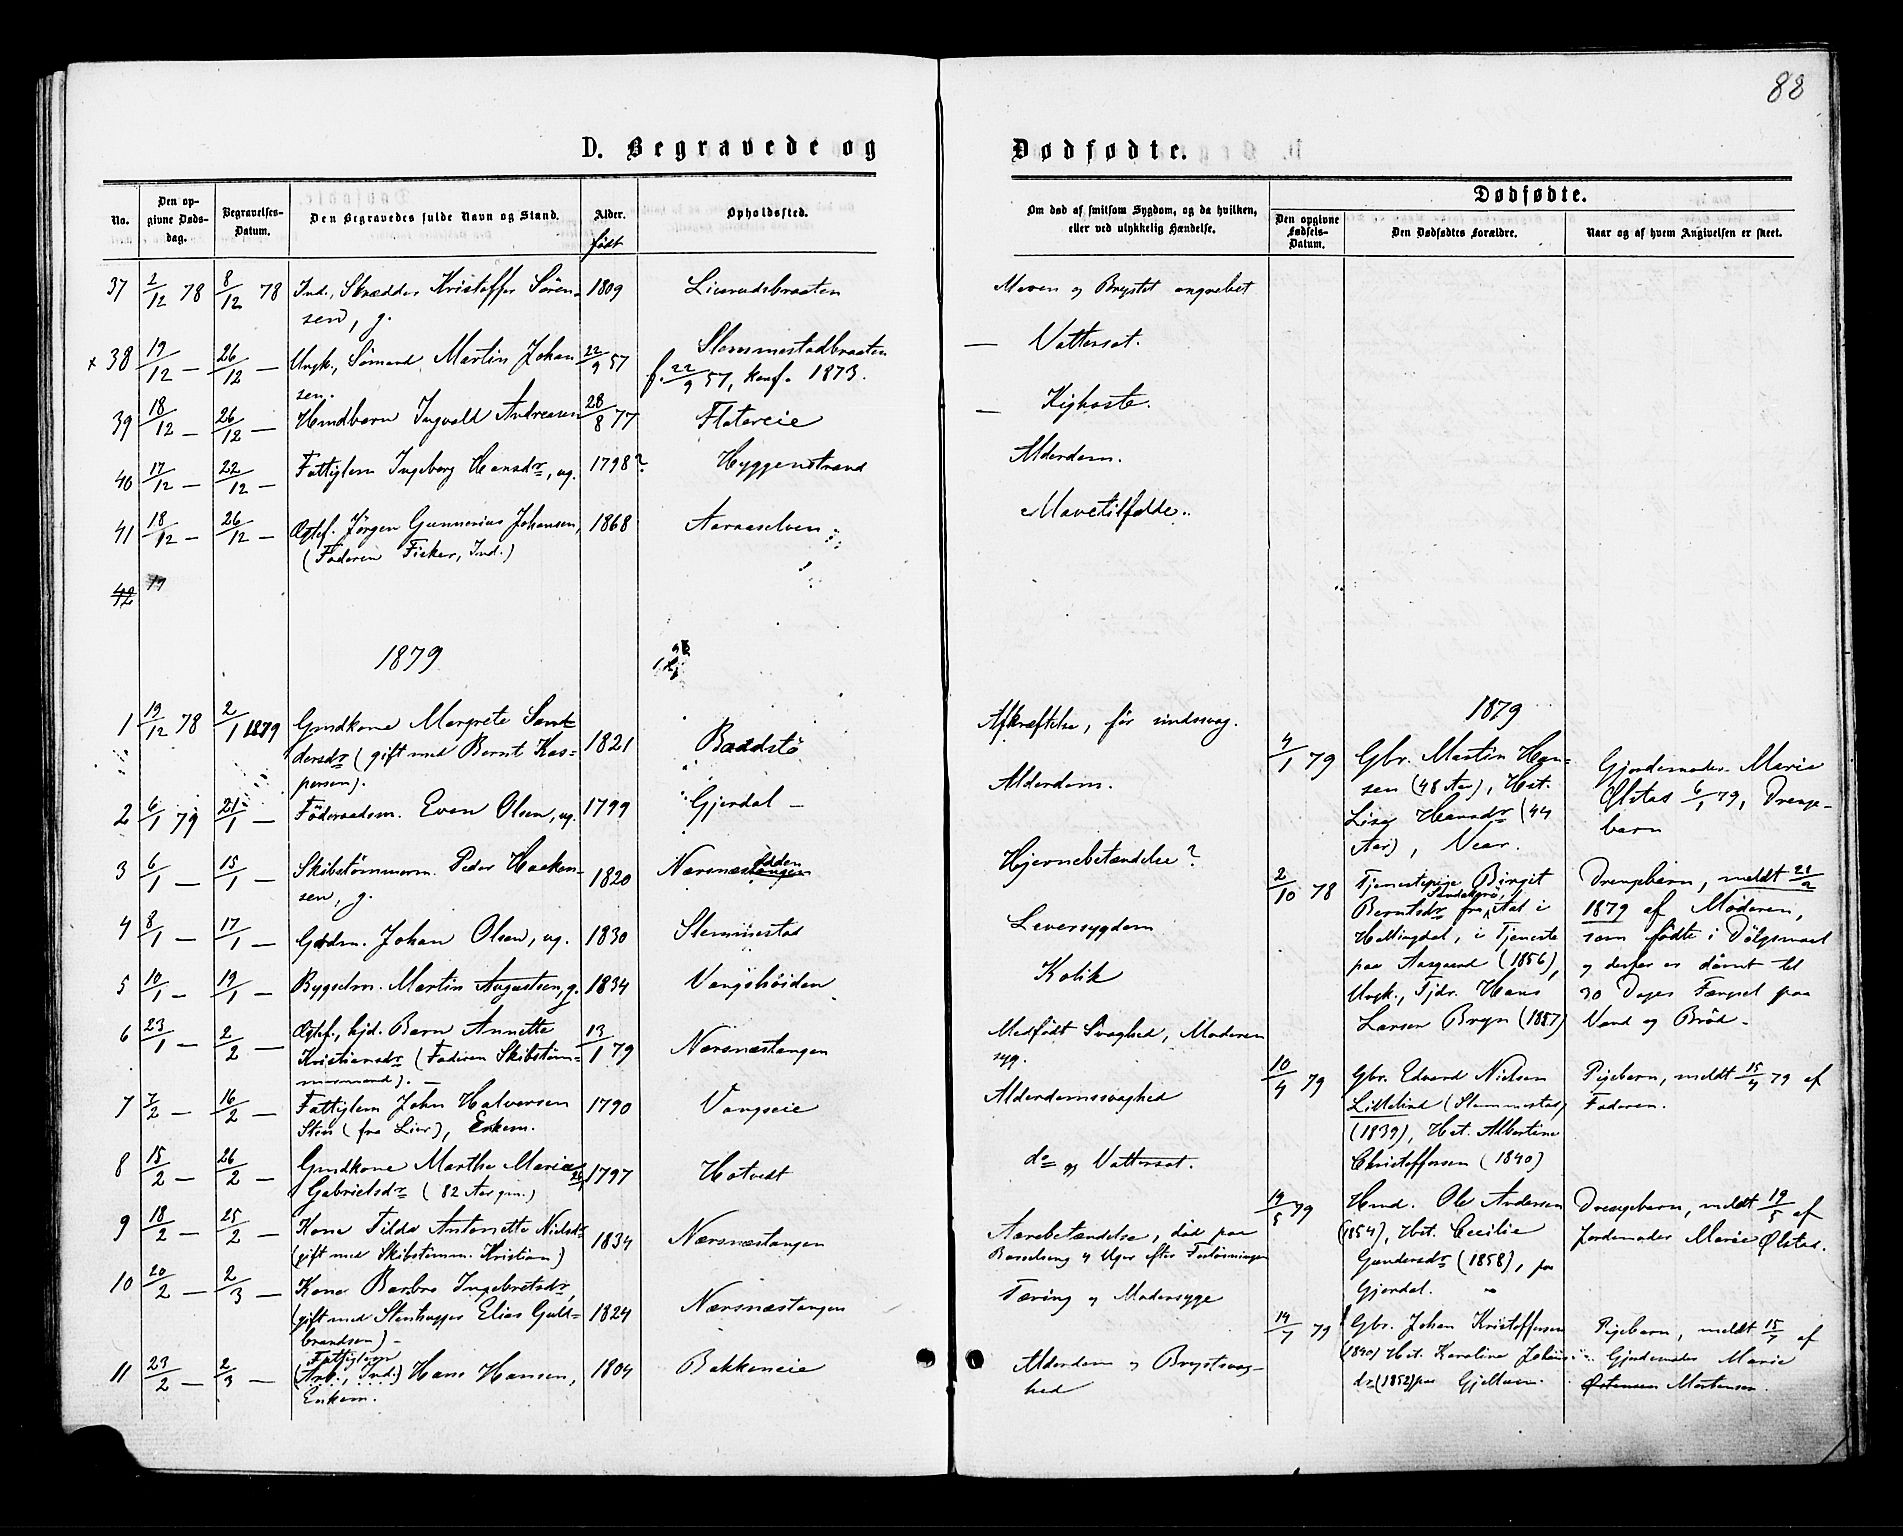 88
D. Begravede og Dødfødte.
No.
Den opgivne Døds-dag.
Begravelses-Datum.
Den Begravedes fulde Navn og Stand.
Alder.
født
Opholdssted.
Om død af smitsom Sygdom, og da hvilken, eller ved ulykkelig Hændelse.
Dødfødte.
Den opgivne Fødsels-Datum.
Den Dødfødtes Forældre.
Naar og af hvem Angivelsen er skeet.
37 2/12 78 8/12 78 Ind., Skrædder Kristoffer Sören- 1809 Maven og Brystet angrebet
sen, g.
x 38 19/12 — 26/12 — Ungk., Sömand Martin Johan 22/9 57 Slemmestadbraaten — Vattersot.
sen. f. 22/9 57, konf. 1873.
39 18/12 — 26/12 — Husdbarn Ingvald Andreasen 28/8 77 — Kighoste.
40 17/12 — 22/12 — Fattiglem Ingeborg Hansdr, ug. 1798? Hyggenstrand Alderdom.
41 18/12 — 26/12 — Ægtef. Jørgen Gunnerius Johansen, 1868 Aaraaselven Mavetilfælde.
(Faderen Fisker, Ind.)
42 19
1879
1 19/12 78 2/1 1879 Gmdkone Margrete San- 1821 Baadstö Afkræftelse, før sindssvag.
dersdr (gift med Bernt Kas-
persen).
2 6/1 79 21/1 — Föderaadsm. Even Olsen, ug. 1799 Gjerdal — Alderdom.
3 6/1 — 15/1 — Skibstömmerm. Peder Haaken- 1820 Nærsnæstangen odden Hjernebetændelse?
sen, g.
4 8/1 — 17/1 — Gaardm. Johan Olsen, ug. 1830 Slemmestad Leversygdom
5 10/1 — 19/1 — Bygselm. Martin Augustsen, g. 1834 Kolik
6 23/1 — 2/2 — Ægtef., hjd. Barn Annette 13/1 79 Nærsnæstangen Medfödt Svaghed, Moderen
Kristiansdr (Faderen Skibstöm- syg.
mermand). —
7 7/2 — 16/2 — Fattiglem John Halvorsen 1790 Vangseie Alderdomssvaghed
(fra Lier), Enkem.
8 15/2 — 26/2 — Gmdkone Marthe Marie 1797 Hotvedt do og Vattersot.
Gabrielsdr (82 Aar gm.)
9 18/2 — 25/2 — Kone Tilda Antonette Nielsdr 1834 Nærsnæstangen Aarebetændelse, död paa
(gift med Skibstömm. Kristian) Barselseng 4 Uger efter Forløsningen
10 20/2 — 2/3 — Kone Barbro Ingebretsdr, 1824 Nærsnæstangen Tæring og Modersyge
(gift med Stenhugger Elias Guld-
brandsen) —
11 23/2 — 2/3 — Fattiglem (Arb., Ind.) Hans Hansen, 1804 Bakkeneie Alderdom og Brystsvag-
Enkem. hed
1879
4/1 79 Gbr. Martin Han- Gjordemoder Marie
sen (48 Aar), Hst. Ølstad 6/1 79, Drenge-
Lise Hansdr (44 barn
Aar), Neær.
2/10 78 Tjenestepige Birgit Drengebarn, meldt 21/2
Berntsdr fra Aal i 1879 af Moderen,
Hallingdal, i Tjeneste som födte i Dölgsmaal
paa Aasgaard (1856), og derfor er dömt til
Ungk., Tjdr. Hans 30 Dages Fængsel paa
Larsen Bryn (1857) Vand og Bröd.
10/4 79 Gbr. Edvard Nielsen Pigebarn, meldt 15/4 79 af
Lillelind (Slemmestad) Faderen.
(1839), Hst. Albertine
Christoffersen (1840)
19/5 79 Hmd. Ole Andersen Drengebarn, meldt 19/5 af
(1854), Hst. Cecilie Jordemoder Marie Ølstad.
Gundersdr (1858), paa
Gjerdal.
14/7 79 Gbr. Johan Kristoffersen Pigebarn, meldt 15/7 af
(1840) Hst. Karoline Johans- Gjordemoder Marie
dr (1852) paa Gjellum. Østensen Mortensen.